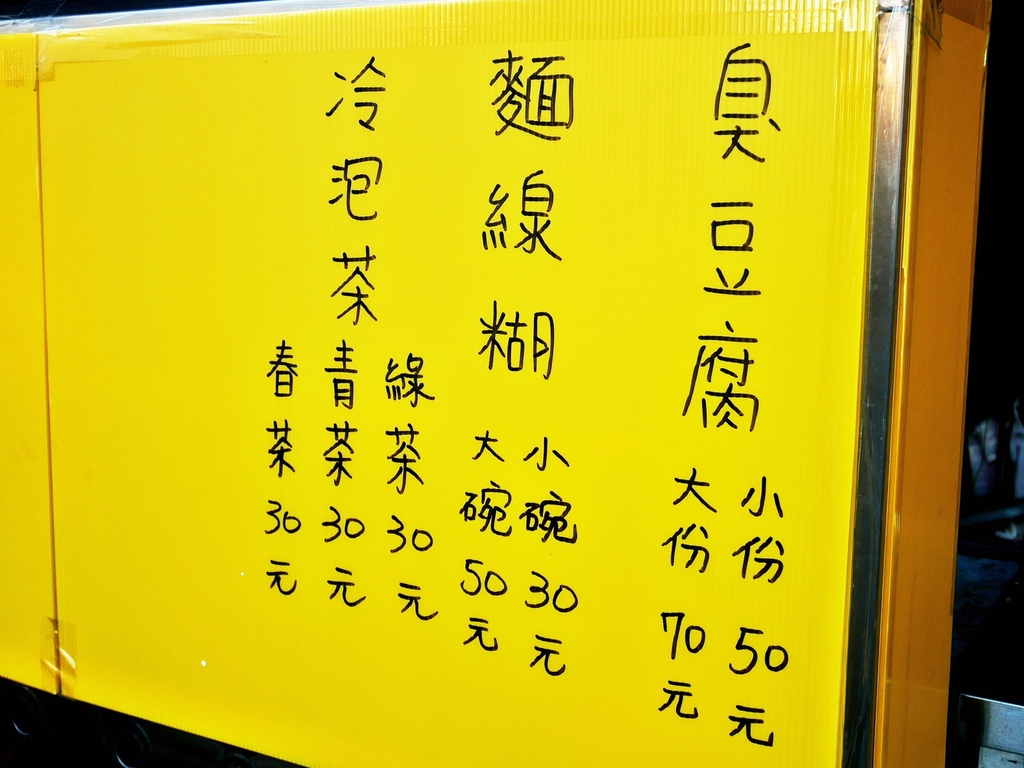 臭豆腐
小份 50元
大份 70元
麵線糊
小碗 30元
大碗 50元
冷泡茶
綠茶 30元
青茶 30元
春茶 30元